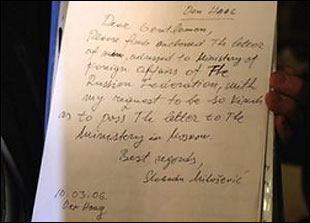 Den Haag
Dear Gentleman,
Please find enclosed the letter
of mine, adressed to Ministry of
foreign affairs of The
Russian Federation, with
my request to be so kind
as to pass the letter to the
Ministery in Moscow.
Best regards,
Slobodan Milošević
10.03.06.
Den Haag